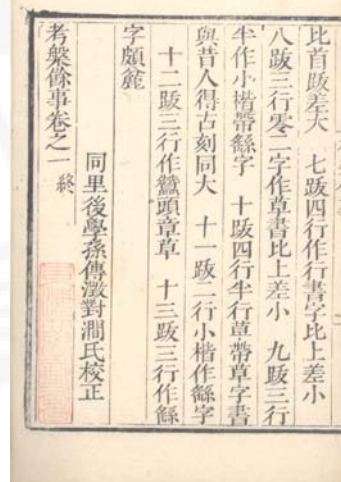 比首跋差大　七跋四行作行書字比上差小
八跋三行零二字作草書比上差小　九跋三行
半作小楷帶繇字　十跋四行半行草帶草字書
與昔人得古刻同大　十一跋二行小楷作繇字
十二跋三行作蠶頭章草　十三跋三行作繇
字頗麄
同里後學孫傳澂對澗氏校正
考槃餘事卷之一終